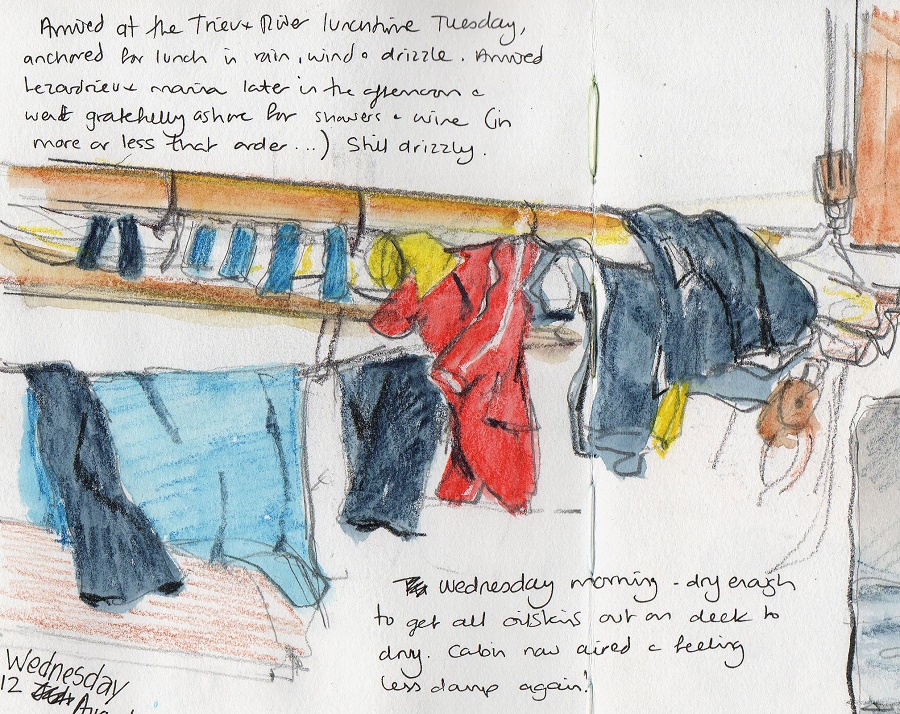 Arrived at the Trieux River lunchtime Tuesday,
anchored for lunch in rain, wind & drizzle. Arrived
Lezardrieux marina later in the afternoon &
went gratefully ashore for showers & wine (in
more or less that order...) Still drizzly.
Wednesday morning - dry enough
to get all oilskins out on deck to
dry. Cabin now aired & feeling
less damp again!
Wednesday
12